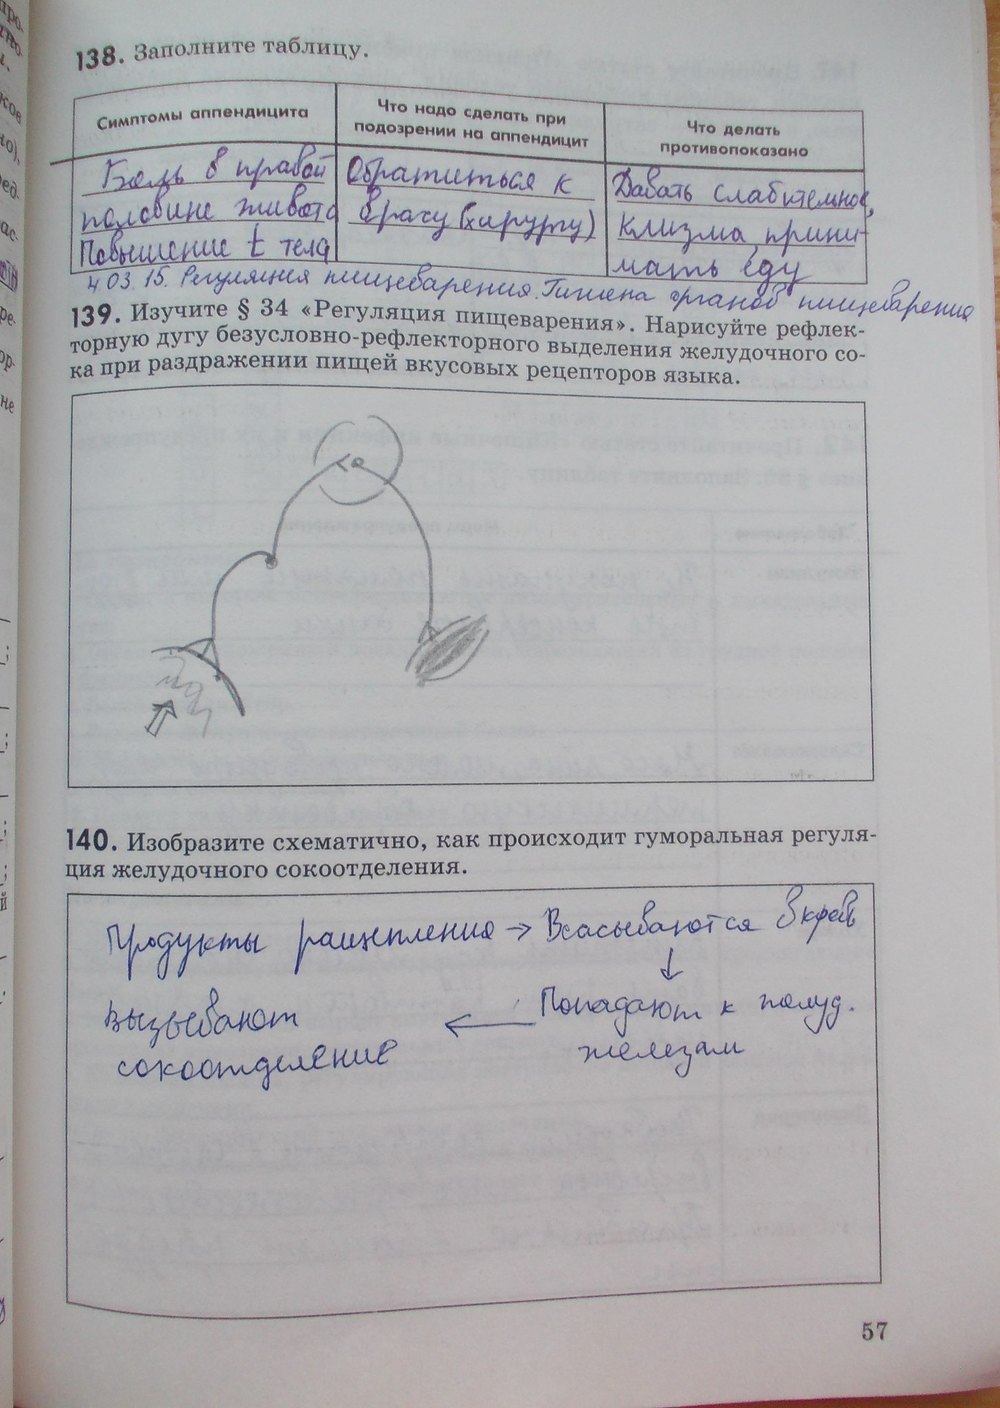 138. Заполните таблицу.
Симптомы аппендицита
Что надо сделать при
подозрении на аппендицит
Что делать
противопоказано
Боль в правой
половине живота
Повышение t тела
Обратиться к
врачу (хирургу)
Давать слабительное,
клизма, прини-
мать еду
4.03.15. Регуляция пищеварения. Гигиена органов пищеварения
139. Изучите § 34 «Регуляция пищеварения». Нарисуйте рефлек-
торную дугу безусловно-рефлекторного выделения желудочного со-
ка при раздражении пищей вкусовых рецепторов языка.
140. Изобразите схематично, как происходит гуморальная регуля-
ция желудочного сокоотделения.
Продукты ращепления → Всасываются в кровь
↓
Попадают к желуд.
железам
←
Вызывают
сокоотделение
57